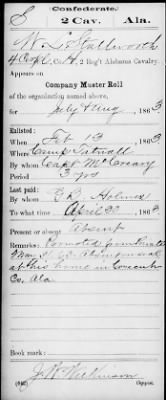 Confederate.
S
2 Cav.
Ala.
W. L. Stallworth
4 Corp Co. H, 2 Reg't Alabama Cavalry.
Appears on
Company Muster Roll
of the organization named above,
for July & Aug, 1863
Enlisted:
When Feb 13 1863
Where Camp Tatnall
By whom Capt McCreary
Period 3 yrs
Last paid:
By whom G. B. Holmes
To what time April 30 1863
Present or absent Absent
Remarks: Promoted from Private
at his home in Conecuh
Co. Ala
Book mark:
J. W. Wilkinson
Copyist.